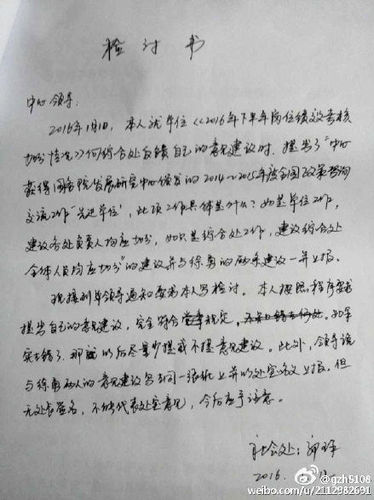 检讨书
中心领导:
2016年1月1日,本人就单位《2016年下半年岗位绩效考核
加分情况》向综合处反馈自己的意见建议时,提出了"中心
获得国务院发展研究中心颁发的2014~2015年度全国政策咨询
交流工作'先进单位',此项工作具体是什么?如是单位工作,
建议各处负责人均应加分,如只是综合处工作,建议综合处
全体人员均应加分"的建议并与徐勇的两条建议一并上报。
现接到单领导通知要求本人写检讨。本人按照程序要求
提出自己的意见建议,完全符合规定,如果
实在错了,那以后尽量少提或不提意见建议。此外,领导说
与徐勇两人的意见建议写在同一张纸上并以处室名义上报,但
无处长签名,不能代表处室意见,今后应予注意。
社会处:
2016.
@gzh5108
weibo.com/u/2112982691